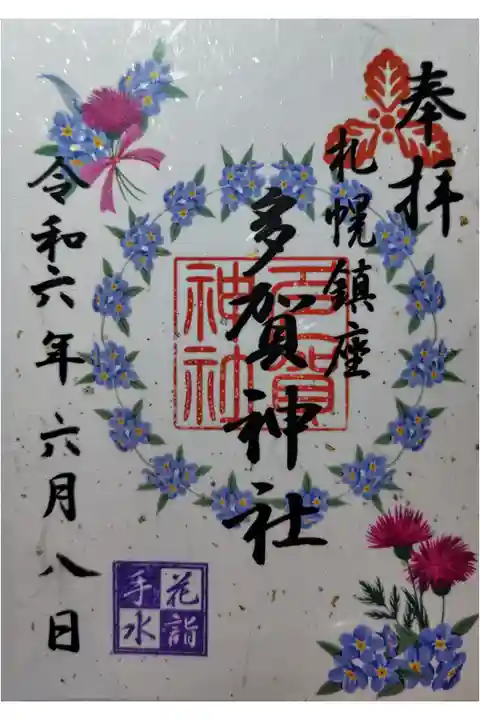 奉拝
札幌鎮座
多賀神社
多賀
神社
令和六年六月八日
花詣
手水